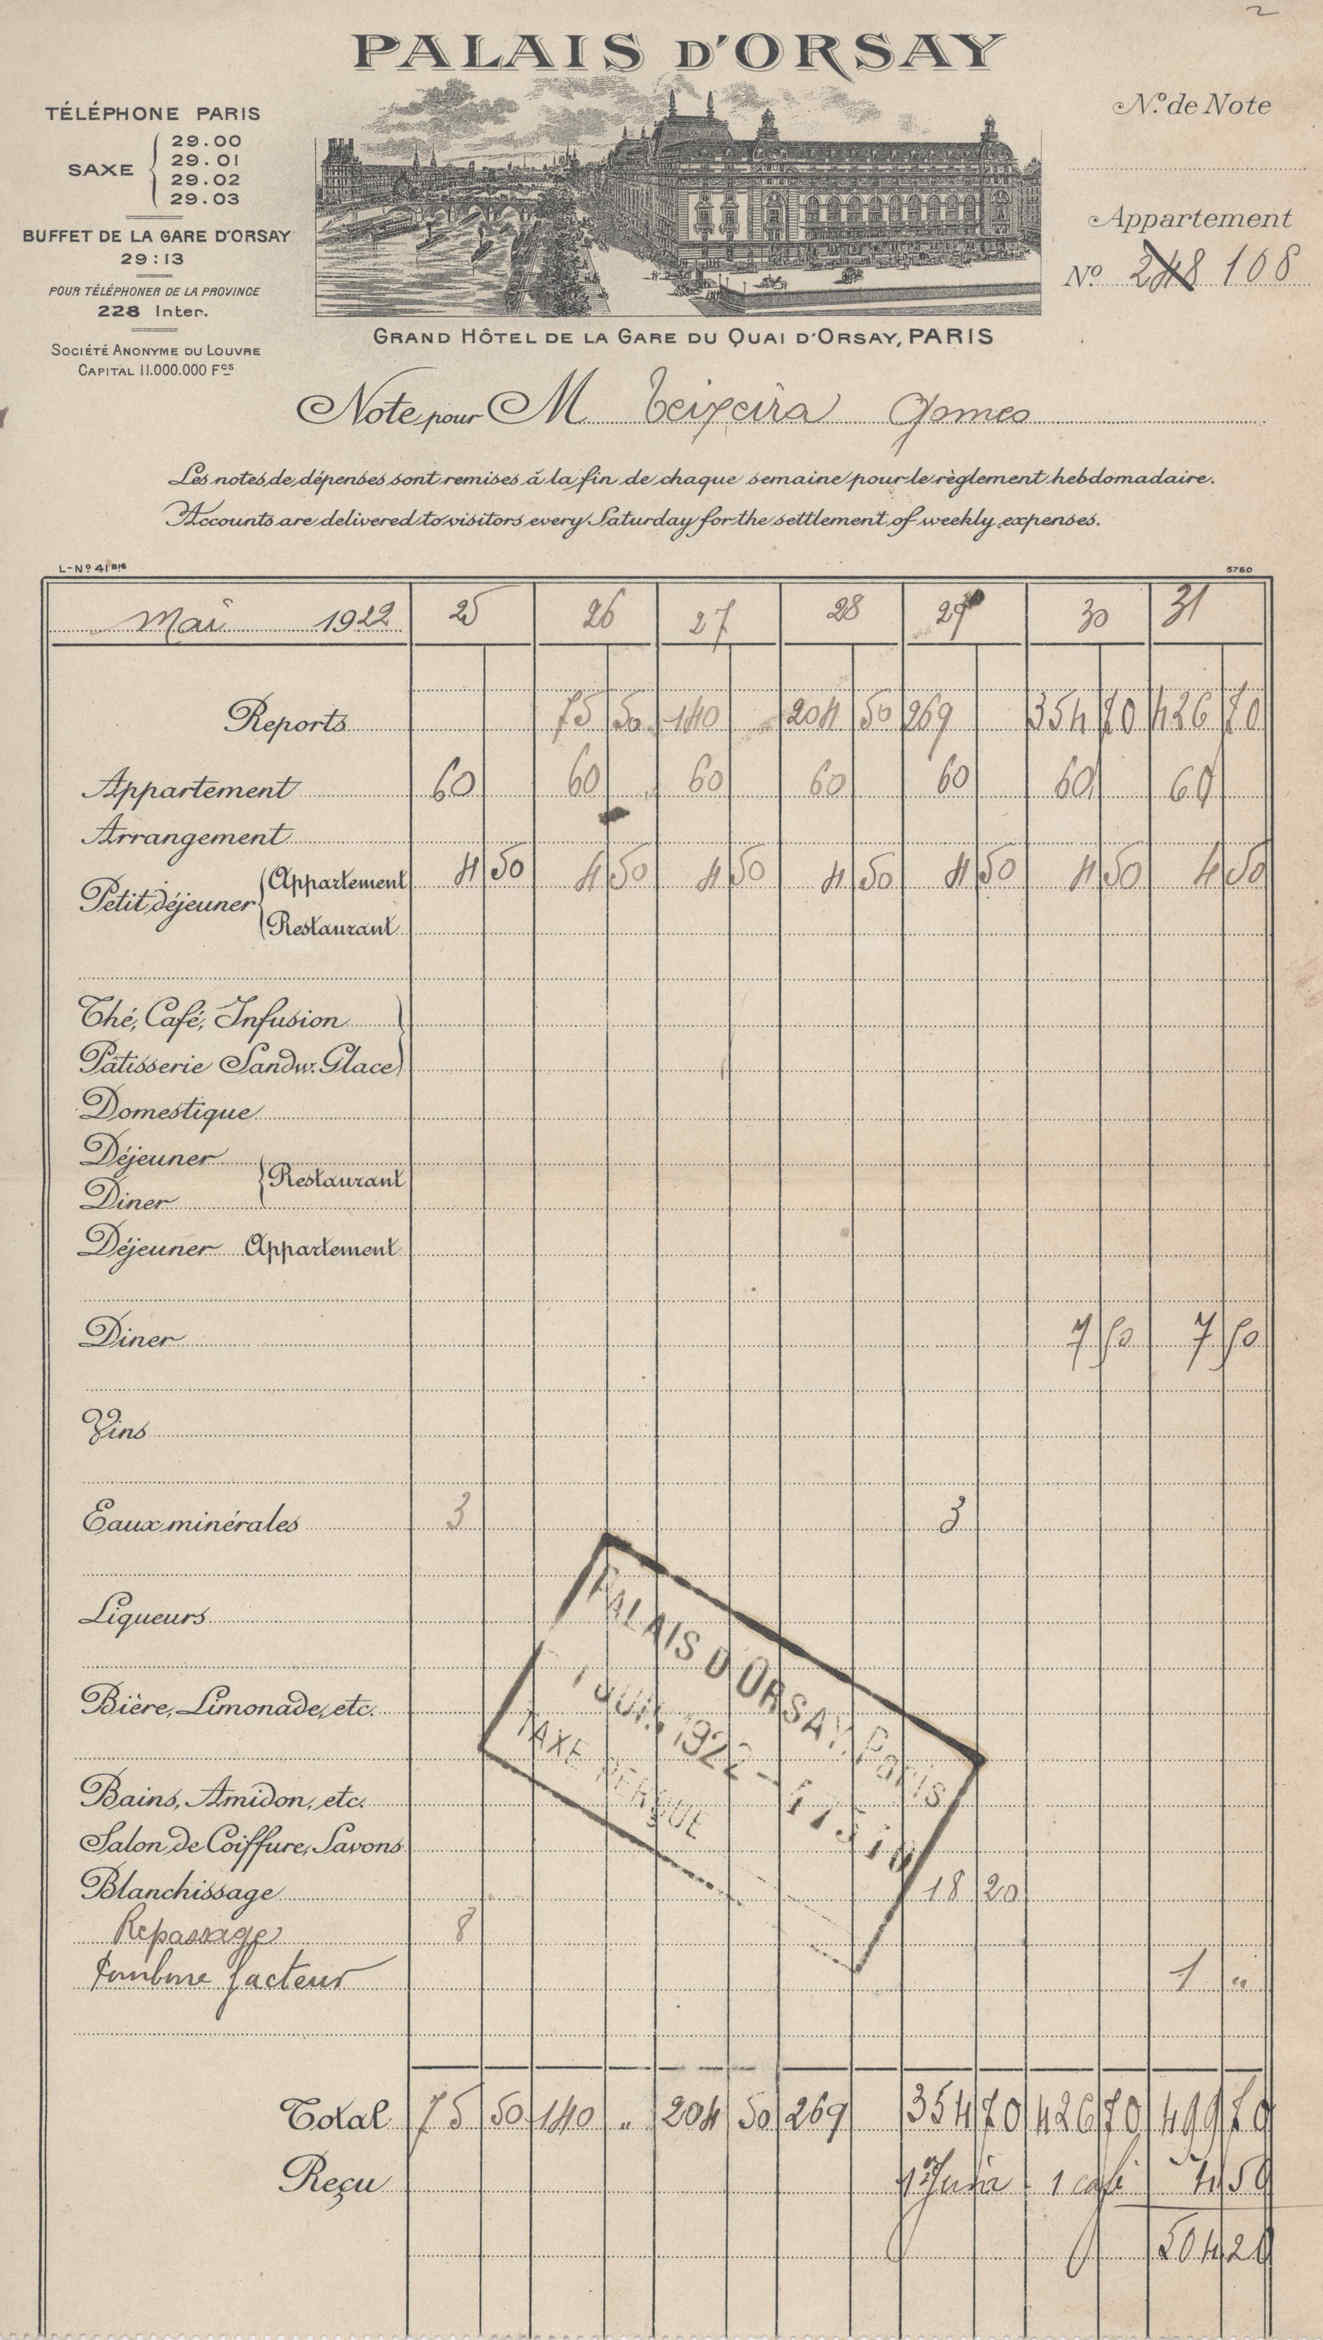 2
PALAIS D'ORSAY
TÉLÉPHONE PARIS
SAXE
29.00
29.01
29.02
29.03
BUFFET DE LA GARE D'ORSAY
29:13
POUR TÉLÉPHONER DE LA PROVINCE
228 Inter.
SOCIÉTÉ ANONYME DU LOUVRE
CAPITAL 11.000.000 Fcs
No. de Note
Appartement
No 248 108
GRAND HÔTEL DE LA GARE DU QUAI D'ORSAY, PARIS
Note pour M Teixeira Gomes
Les notes de dépenses sont remises à la fin de chaque semaine pour le règlement hebdomadaire.
Accounts are delivered to visitors every Saturday for the settlement of weekly expenses.
L-No 41 BIS 5760
Mai 1922 25 26 27 28 29 30 31
Reports 75 50 140 204 50 269 354 70 426 70
Appartement 60 60 60 60 60 60 60
Arrangement
Petit déjeuner Appartement 4 50 4 50 4 50 4 50 4 50 4 50 4 50
Restaurant
Thé, Café, Infusion
Pâtisserie Sandw. Glace
Domestique
Déjeuner
Restaurant
Diner
Déjeuner Appartement
Diner 7 50 7 50
Vins
Eaux minérales 3 3
Liqueurs
Bière, Limonade, etc.
PALAIS D'ORSAY, Paris
1 JUIN 1922 -
TAXE PERÇUE
Bains, Amidon, etc.
Salon de Coiffure, Savons
Blanchissage 18 20
Repassage 8
facteur 1 "
Total 75 50 140 " 204 50 269 354 70 426 70 499 70
Reçu 1er Juin 1 café 4 50
504 20